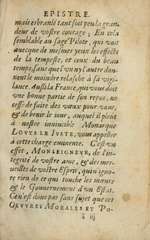 EPISTRE.
mais esbranlé tant soit peu la grandeur
de vostre courage, En cela
semblable au sage Pilote, qui voit
auecque de mesmes yeux les effects
de la tempeste, et ceux du beau
temps, sans que l'vn ny l'autre donnent
le moindre relasche à sa vigilance.
Aussi la France, qui vous doit
vne bonne partie de son repos, ne
cesse de faire des vœux pour vous,
et de benir le iour, auquel il pleut
à nostre inuincible Monarque
LOVYS LE IVSTE, vous appeller
à cette charge eminente. C'est en
effet, MONSEIGNEVR, de l'integrité
de vostre ame, & des merueilles
de vostre Esprit, qu'il ignore
rien de ce qui touche les mœurs,
& le Gouuernement d'vn Estat.
C'est donc par sans sujet que ces
OEVVRES MORALES ET PO-
ã iij